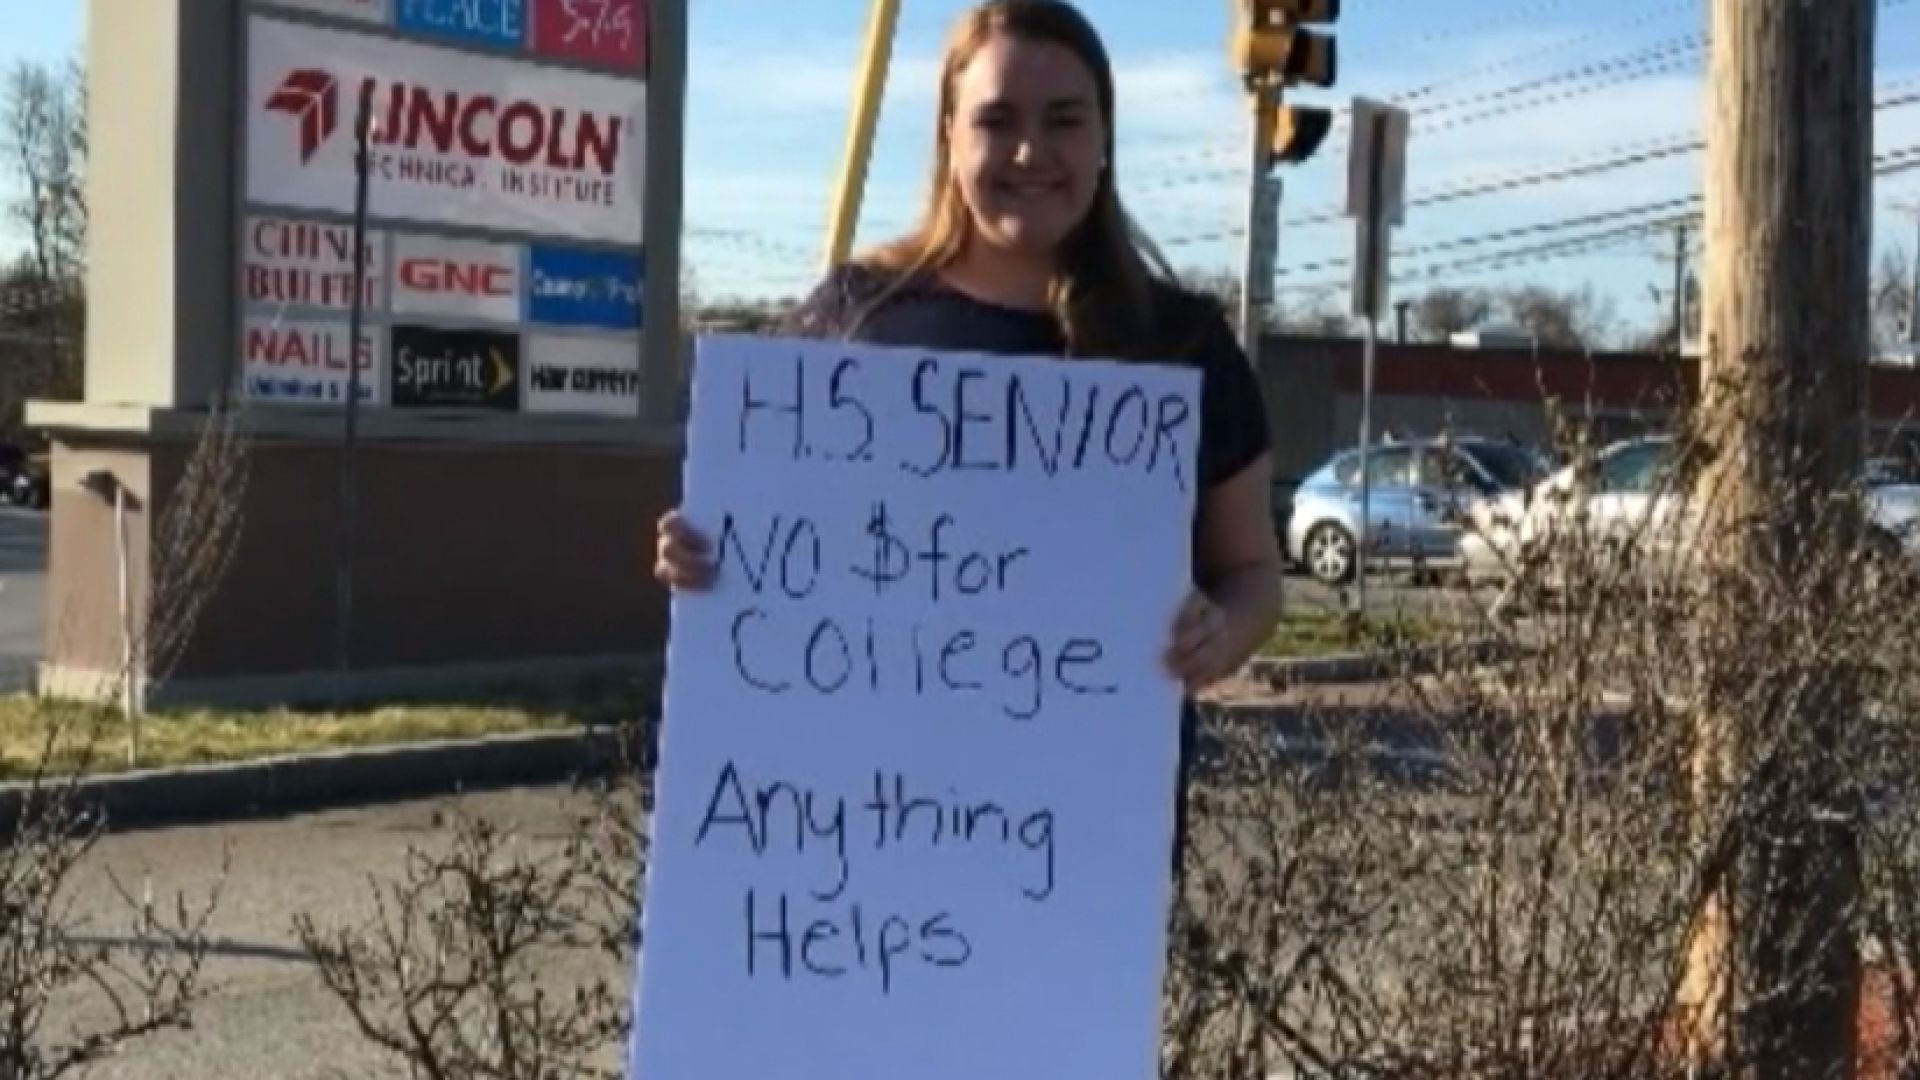 PLACE
5.7.9
LINCOLN
TECHNICAL INSTITUTE
CHINA
BUFFET
GNC
NAILS
Sprint
H.S. SENIOR
NO $ for
College
Anything
Helps